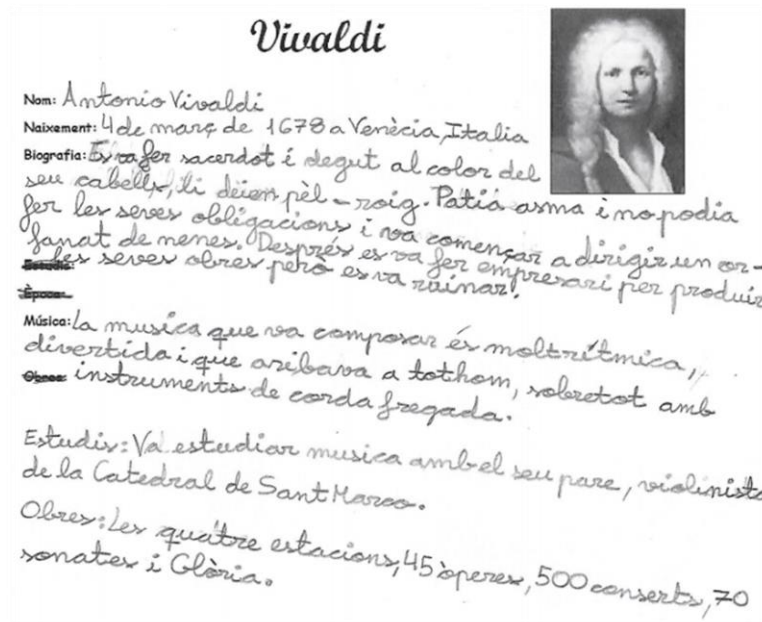 Vivaldi
Nom: Antonio Vivaldi
Naixement: 4 de març de 1678 a Venècia, Italia
Biografia: Es va fer sacerdot i degut al color del
seu cabells, li deien pèl-roig. Patia asma i no podia
fer les seves obligacions i va començar a dirigir un or-
fanat de nenes. Després es va fer empresari per produir
Estudis: les seves obres però es va ruinar.
Època:
Música: La musica que va composar és molt rítmica,
divertida i que aribava a tothom, sobretot amb
Obres: instruments de corda fregada.
Estudis: Va estudiar musica amb el seu pare, violinista
de la Catedral de Sant Marco.
Obres: Les quatre estacions, 45 òperes, 500 conserts, 70
sonates i Glòria.